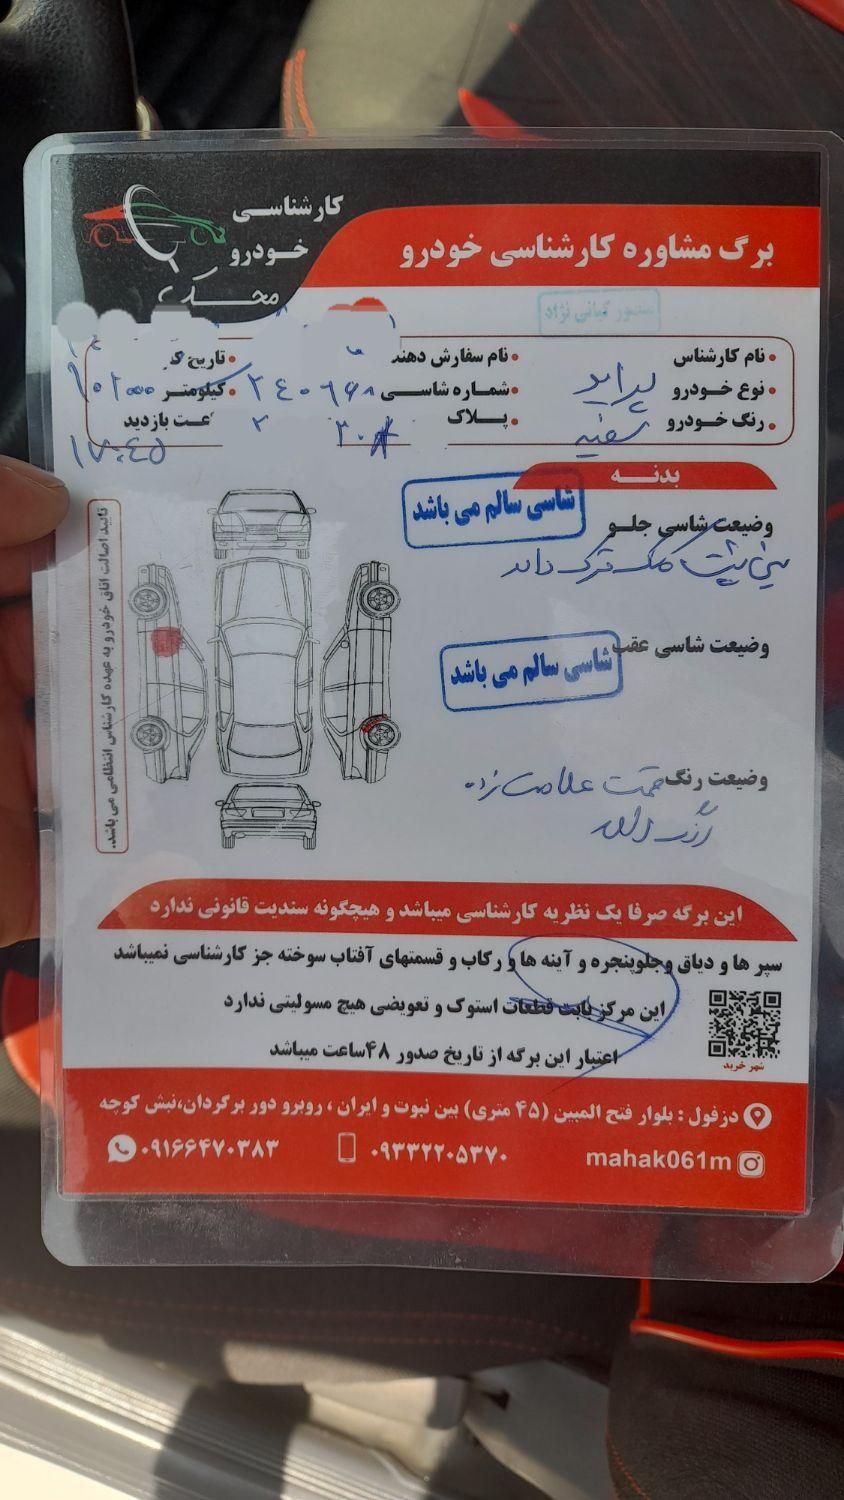 کارشناسی
خودرو
محک
برگ مشاوره کارشناسی خودرو
• نام کارشناس
• نام سفارش دهنده
• تاریخ
• نوع خودرو پراید
• شماره شاسی
• کیلومتر
• رنگ خودرو سفید
• پلاک
ساعت بازدید ۱۷:۴۵
بدنه
وضعیت شاسی جلو
شاسی سالم می باشد
سینی پشت کمک ترک دارد
وضعیت شاسی عقب
شاسی سالم می باشد
وضعیت رنگ قسمت علامت زده
رنگ دارد
تایید اصالت اتاق خودرو به عهده کارشناس انتظامی می باشد.
این برگه صرفا یک نظریه کارشناسی میباشد و هیچگونه سندیت قانونی ندارد
سپر ها و دیاق وجلوپنجره و آینه ها و رکاب و قسمتهای آفتاب سوخته جز کارشناسی نمیباشد
این مرکز بابت قطعات استوک و تعویضی هیچ مسولیتی ندارد
اعتبار این برگه از تاریخ صدور ۴۸ساعت میباشد
شهر خرید
دزفول : بلوار فتح المبین (۴۵ متری) بین نبوت و ایران ، روبرو دور برگردان،نبش کوچه
mahak061m
۰۹۳۳۲۲۰۵۳۷۰
۰۹۱۶۶۴۷۰۳۸۳